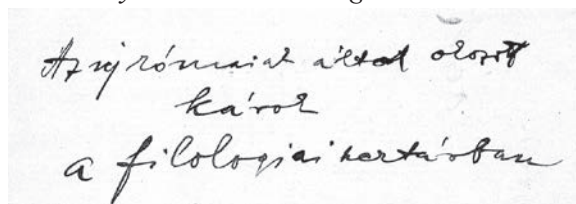 Az új rómaiak által okozott
károk
a filologiai kertásban